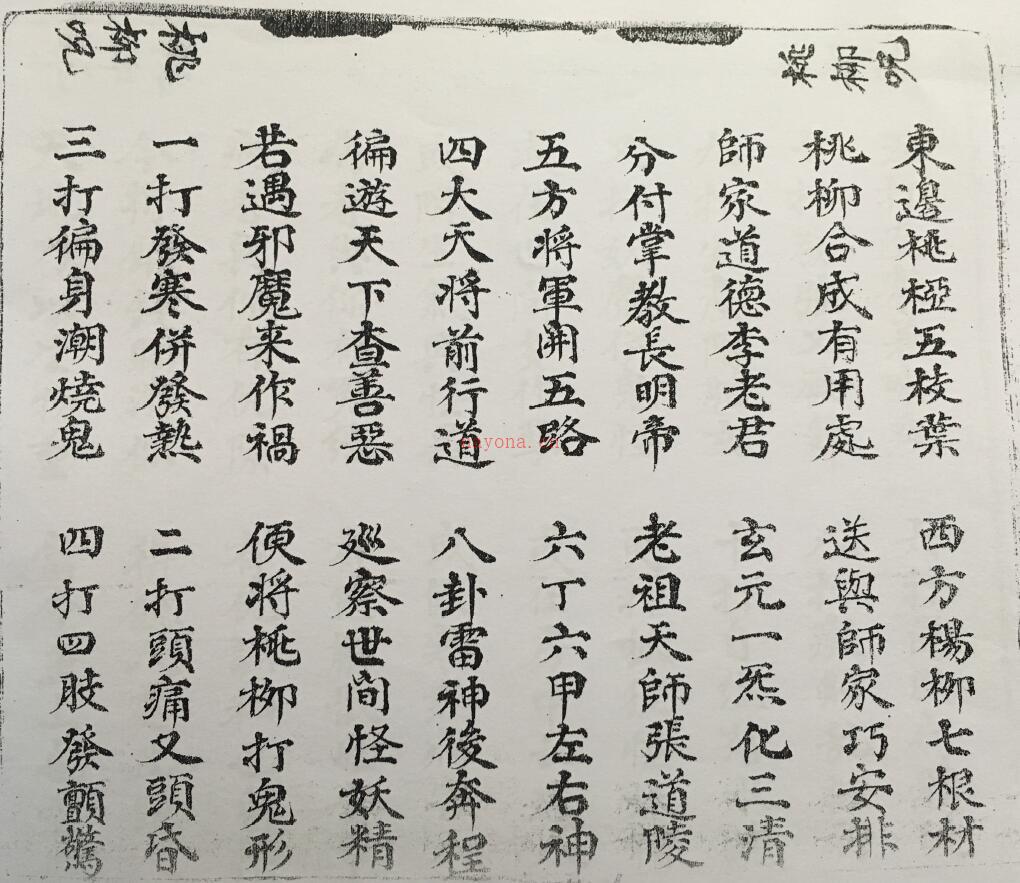 東邊桃椏五枝葉 西方楊柳七根材
桃柳合成有用處 送與師家巧安排
師家道德李老君 玄元一炁化三清
分付掌教長明帝 老祖天師張道陵
五方将軍開五路 六丁六甲左右神
四大天将前行道 八卦雷神後奔程
徧遊天下查善惡 廵察世间怪妖精
若遇邪魔来作禍 便将桃柳打鬼形
一打發寒併發熱 二打頭痛又頭昏
三打徧身潮燒鬼 四打四肢發顫驚
桃柳咒